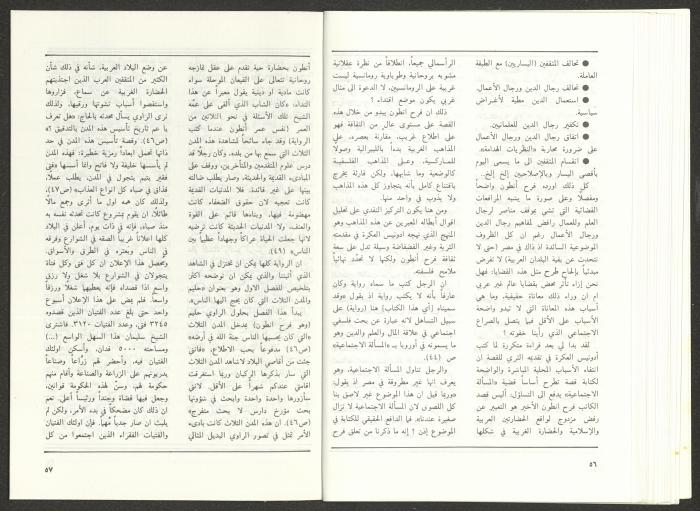 ● تحالف المثقفين (اليساريين) مع الطبقة
العاملة.
● تحالف رجال الدين ورجال الأعمال.
● استعمال الدين مطية لأغراض
سياسية.
● تكفير رجال الدين للعلمانيين.
● اتفاق رجال الدين ورجال الأعمال
على ضرورة محاربة «النظريات الهدامة».
● انقسام المثقفين الى ما يسمى اليوم
بأقصى اليسار وبالإصلاحيين إلخ إلخ..
كل ذلك اورده فرح أنطون واضحاً
ومفصلاً وعلى صورة ما ينبه المرافعات
القضائية التي تشي بموقف مناصر لرجال
العلم وللعمال رافض لمفاهيم رجال الدين
ورجال الأعمال رغم ان كل الظروف
الموضوعية السائدة اذ ذاك في مصر (حتى لا
نتحدث عن بقية البلدان العربية) لا تفرض
مبدئياً بإلحاح طرح مثل هذه القضايا: فهل
نحن إزاء تأثر محض بقضايا عالم غير عربي
ام ان وراء ذلك معاناةً حقيقية، وما هي
أسباب هذه المعاناة التي لا تبدو واضحة
الأسباب على الأقل فيما يتصل بالصراع
الاجتماعي الذي رأينا خطوته ؟
لقد بدا لي بعد قراءة متكررة لما كتب
أدونيس العكرة في تقديمه الثري للقصة ان
انتفاء الأسباب المحلية المباشرة والواضحة
لكتابة قصة تطرح أساساً قضية «المسألة
الاجتماعية» يدفع الى التساؤل: أليس قصد
الكاتب فرح أنطون الأخير هو التعبير عن
رفض مزدوج لواقع الحضارتين العربية
والإسلامية والحضارة الغربية في شكلها
الرأسمالي جميعاً، انطلاقاً من نظرة عقلانية
مشوبة بروحانية وطوباوية رومانسية ليست
غربية على الرومانسيين، لا الدعوة الى مثال
غربي يكون موضع اقتداء ؟
ذلك ان فرح أنطون يبدو من خلال هذه
القصة على مستوى عال من الثقافة فهو
على اطلاع غريب، مقارنة بعصره، على
المذاهب الغربية بدأ بالليبرالية وصولاً
للماركسية، وعلى المذاهب الفلسفية
كالوضعية وما شابهها، ولكن قارئه يخرج
باقتناع كامل بأنه يتجاوز كل هذه المذاهب
ولا يذوب في واحد منها.
ومن هنا يكون التركيز النقدي على تحليل
أقوال أبطاله المعبرين عن هذه المذاهب وهو
المنهج الذي نهجه ادونيس العكرة في مقدمته
الثرية وغير الفضفاضة وسيلة تدل على سعة
ثقافة فرح أنطون ولكنها لا تحدّد نهائياً
ملامح فلسفته.
ان الرجل كتب ما سماه رواية وكان
عارفاً بأنه لا يكتب رواية اذ يقول «وقد
سميناه (أي هذا الكتاب) هنا (رواية) على
سبيل التساهل لانه عبارة عن بحث فلسفي
اجتماعي في علاقة المال والعلم والدين وهو
ما يسمونه في أوروبا بـ «المسألة الاجتماعية»
ص (٤٤).
والرجل تناول المسألة الاجتماعية، وهو
يعرف انها غير مطروقة في مصر اذ يقول:
«وربما قيل ان هذا الموضوع غير لاصق بنا
كل اللصوق لان المسألة الاجتماعية لا تزال
صغيرة عندنا». فما الدافع الحقيقي للكتابة في
الموضوع إذن ؟ إنه ما ذكرنا من تعلق فرح
٥٦
أنطون بحضارة حية تقدم على عقل تمازجه
روحانية تتعالى على القيعان الموحلة سواء
كانت مادية او دينية يقول معبراً عن هذا
النداء: «كان الشاب الذي ألقى على عمّه
الشيخ تلك الأسئلة في نحو الثلاثين من
العمر (نفس عمر أنطون عندما كتب
الرواية) وقد جاء سائحاً لمشاهدة هذه المدن
الثلاث التي سمع بها من بعده. وكان رجلاً قد
درس علوم المتقدمين والمتأخرين، ووقف على
المبادىء القديمة والحديثة، وصار يطلب ضالته
بينها على غير فائدة. فلا المدنيات القديمة
كانت تعجبه لان حقوق الضعفاء كانت
مهضومة فيها، وبناءها قائم على القوة
والعنف، ولا المدنيات الحديثة كانت ترضيه
لانها جعلت الحياة عراكاً وجهاداً عظيماً بين
الناس» (٤٩).
ان الرواية كلها يمكن ان تختزل في الشاهد
الذي أثبتنا والذي يمكن ان نوضحه اكثر
بتلخيص للفصل الاول وهو بعنوان «حليم
والمدن الثلاث التي كان يحج اليها الناس».
يبدأ هذا الفصل بحلول الراوي حليم
(وهو فرح أنطون) بمدخل المدن الثلاث
«التي كان يحسبها الناس جنة الله في أرضه»
(ص٤٦) مدفوعاً بحب الاطلاع، «فانني
جئت من أقاصي البلاد لشاهد المدن الثلاث
التي سار بذكرها الركبان وربما استغرقت
اقامتي عندكم شهراً على الأقل لانني
سأزورها واحدة واحدة وابحث في شؤونها
بحث مؤرخ دارس لا بحث متفرج»
(ص٤٦). ان هذه المدن الثلاث كانت بادىء
الأمر تمثل في تصور الراوي البديل المثالي
عن وضع البلاد العربية. شأنه في ذلك شأن
الكثير من المثقفين العرب الذين اجتذبتهم
الحضارة الغربية عن سماع، فزاروها
واستقصوا أسباب نشوئها ورقيها، ولذلك
نرى الراوي يسأل محدثه بالحاح: «هل تعرف
يا عم تاريخ تأسيس هذه المدن بالتدقيق ؟»
(ص٤٧). وقصة تأسيس هذه المدن في حد
ذاتها تحمل أبعاداً رمزية خطيرة: فهذه المدن
لم يأسسها خليفة ولا فاتح وانما أسسها «فتى
فقير يتيم يتجول في المدن، يطلب عملاً،
فذاق في صباه كل أنواع العذاب» (ص٤٧).
ولذلك كان همه اول ما أثرى وجمع مالاً
طائلاً، ان يقوم بمشروع كانت تحدثه نفسه به
منذ صباه. فإنه في ذات يوم، أعلن في البلاد
كلها اعلاناً غريباً الصقه في الشوارع وفرقه
في الناس وبعثره في الطرق والأسواق.
ومحصل هذا الإعلان ان كل فتى وكل فتاة
يتجولان في الشوارع بلا شغل ولا رزق
واسع اذا قصداه فإنه يعطيهما شغلاً ورزقاً
واسعاً. فلم يمض على هذا الاعلان أسبوع
واحد حتى بلغ عدد الفتيان الذين قصدوه
٣٢٤٥ فتى، وعدد الفتيات ٣١٢٠. فاشترى
الشيخ سليمان هذا السهل الواسع (...)
ومساحته ٥٠٠٠ فدان. وأسكن اولئك
الفتيان فيه، وأحضر لهم زرّاعاً وصناعاً
يدربونهم على الزراعة والصناعة وأقام منهم
حكومة لهم. وسنّ لهذه الحكومة قوانين،
وجعل فيها قضاة وجنداً ورئيساً أعلى. نعم
ان ذلك كان مضحكاً في بدء الأمر، ولكن لم
يلبث ان صار جدياً مهماً. فإن اولئك الفتيان
والفتيات الفقراء الذين اجتمعوا من كل
٥٧